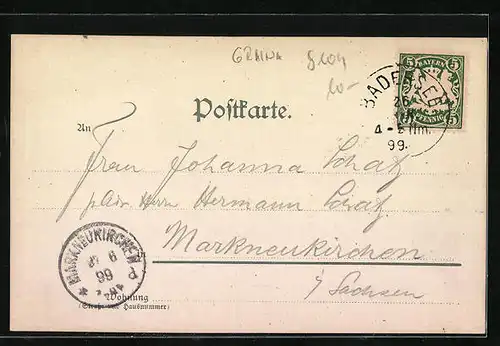 GRAINA 8104
10-
BAYERN
5 5
PFENNIG
BADERSEE
26
4-5 Nm.
99.
Postkarte.
An
Frau Johanna Schatz
p. Adr. Herrn Hermann Schatz
Markneukirchen
i/ Sachsen
MARKNEUKIRCHEN
27 6
99
Wohnung
(Straße und Hausnummer)